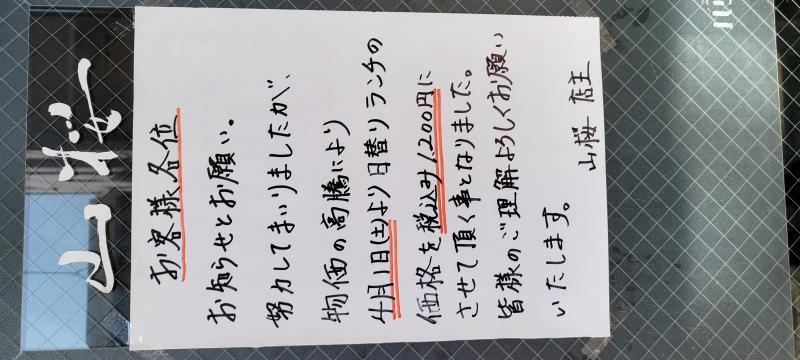 山桜
お客様各位
お知らせとお願い。
努力してまいりましたが、
物価の高騰により
4月1日(土)より日替りランチの
価格を税込み1,200円に
させて頂く事となりました。
皆様のご理解よろしくお願い
いたします。
山桜 店主